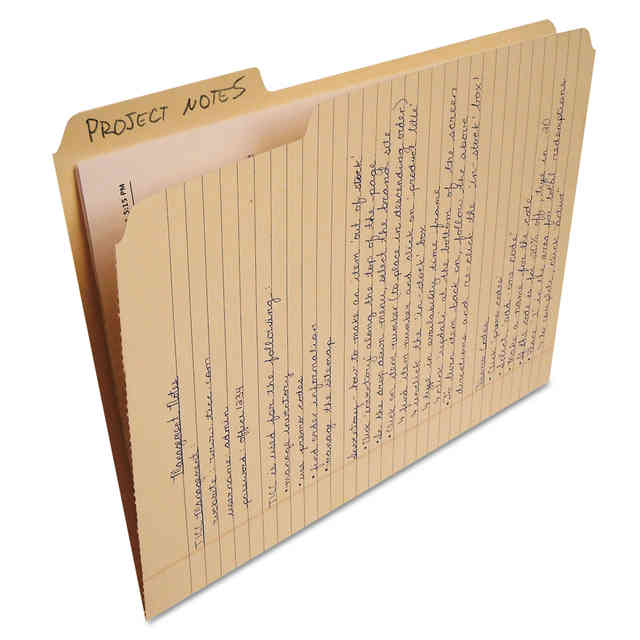 PROJECT NOTES
5:15 PM
Management Notes
TICC Management:
website: www.ticc.com
username: admin
password: office1234
TICC is used for the following:
• manage inventory
• use promo codes
• find order information
• manage the sitemap
Inventory - how to make an item 'out of stock'
• Click 'inventory' along the top of the page
• In the drop down menu, select the brand site
• Click on item number (to place in descending order)
↳ find item number and click on 'product title'
↳ unclick the 'in-stock' box
↳ type in availability time frame
↳ click 'update' at the bottom of the screen
• To turn item back on, follow the above
directions and re-click the 'in-stock' box!
Promo Codes
• Click 'promo codes'
• Select 'add one code'
• Make a name for the code
• If the code is for 20% off, type in 20
• Place 1 in the area for total redemptions
• to complete, click active